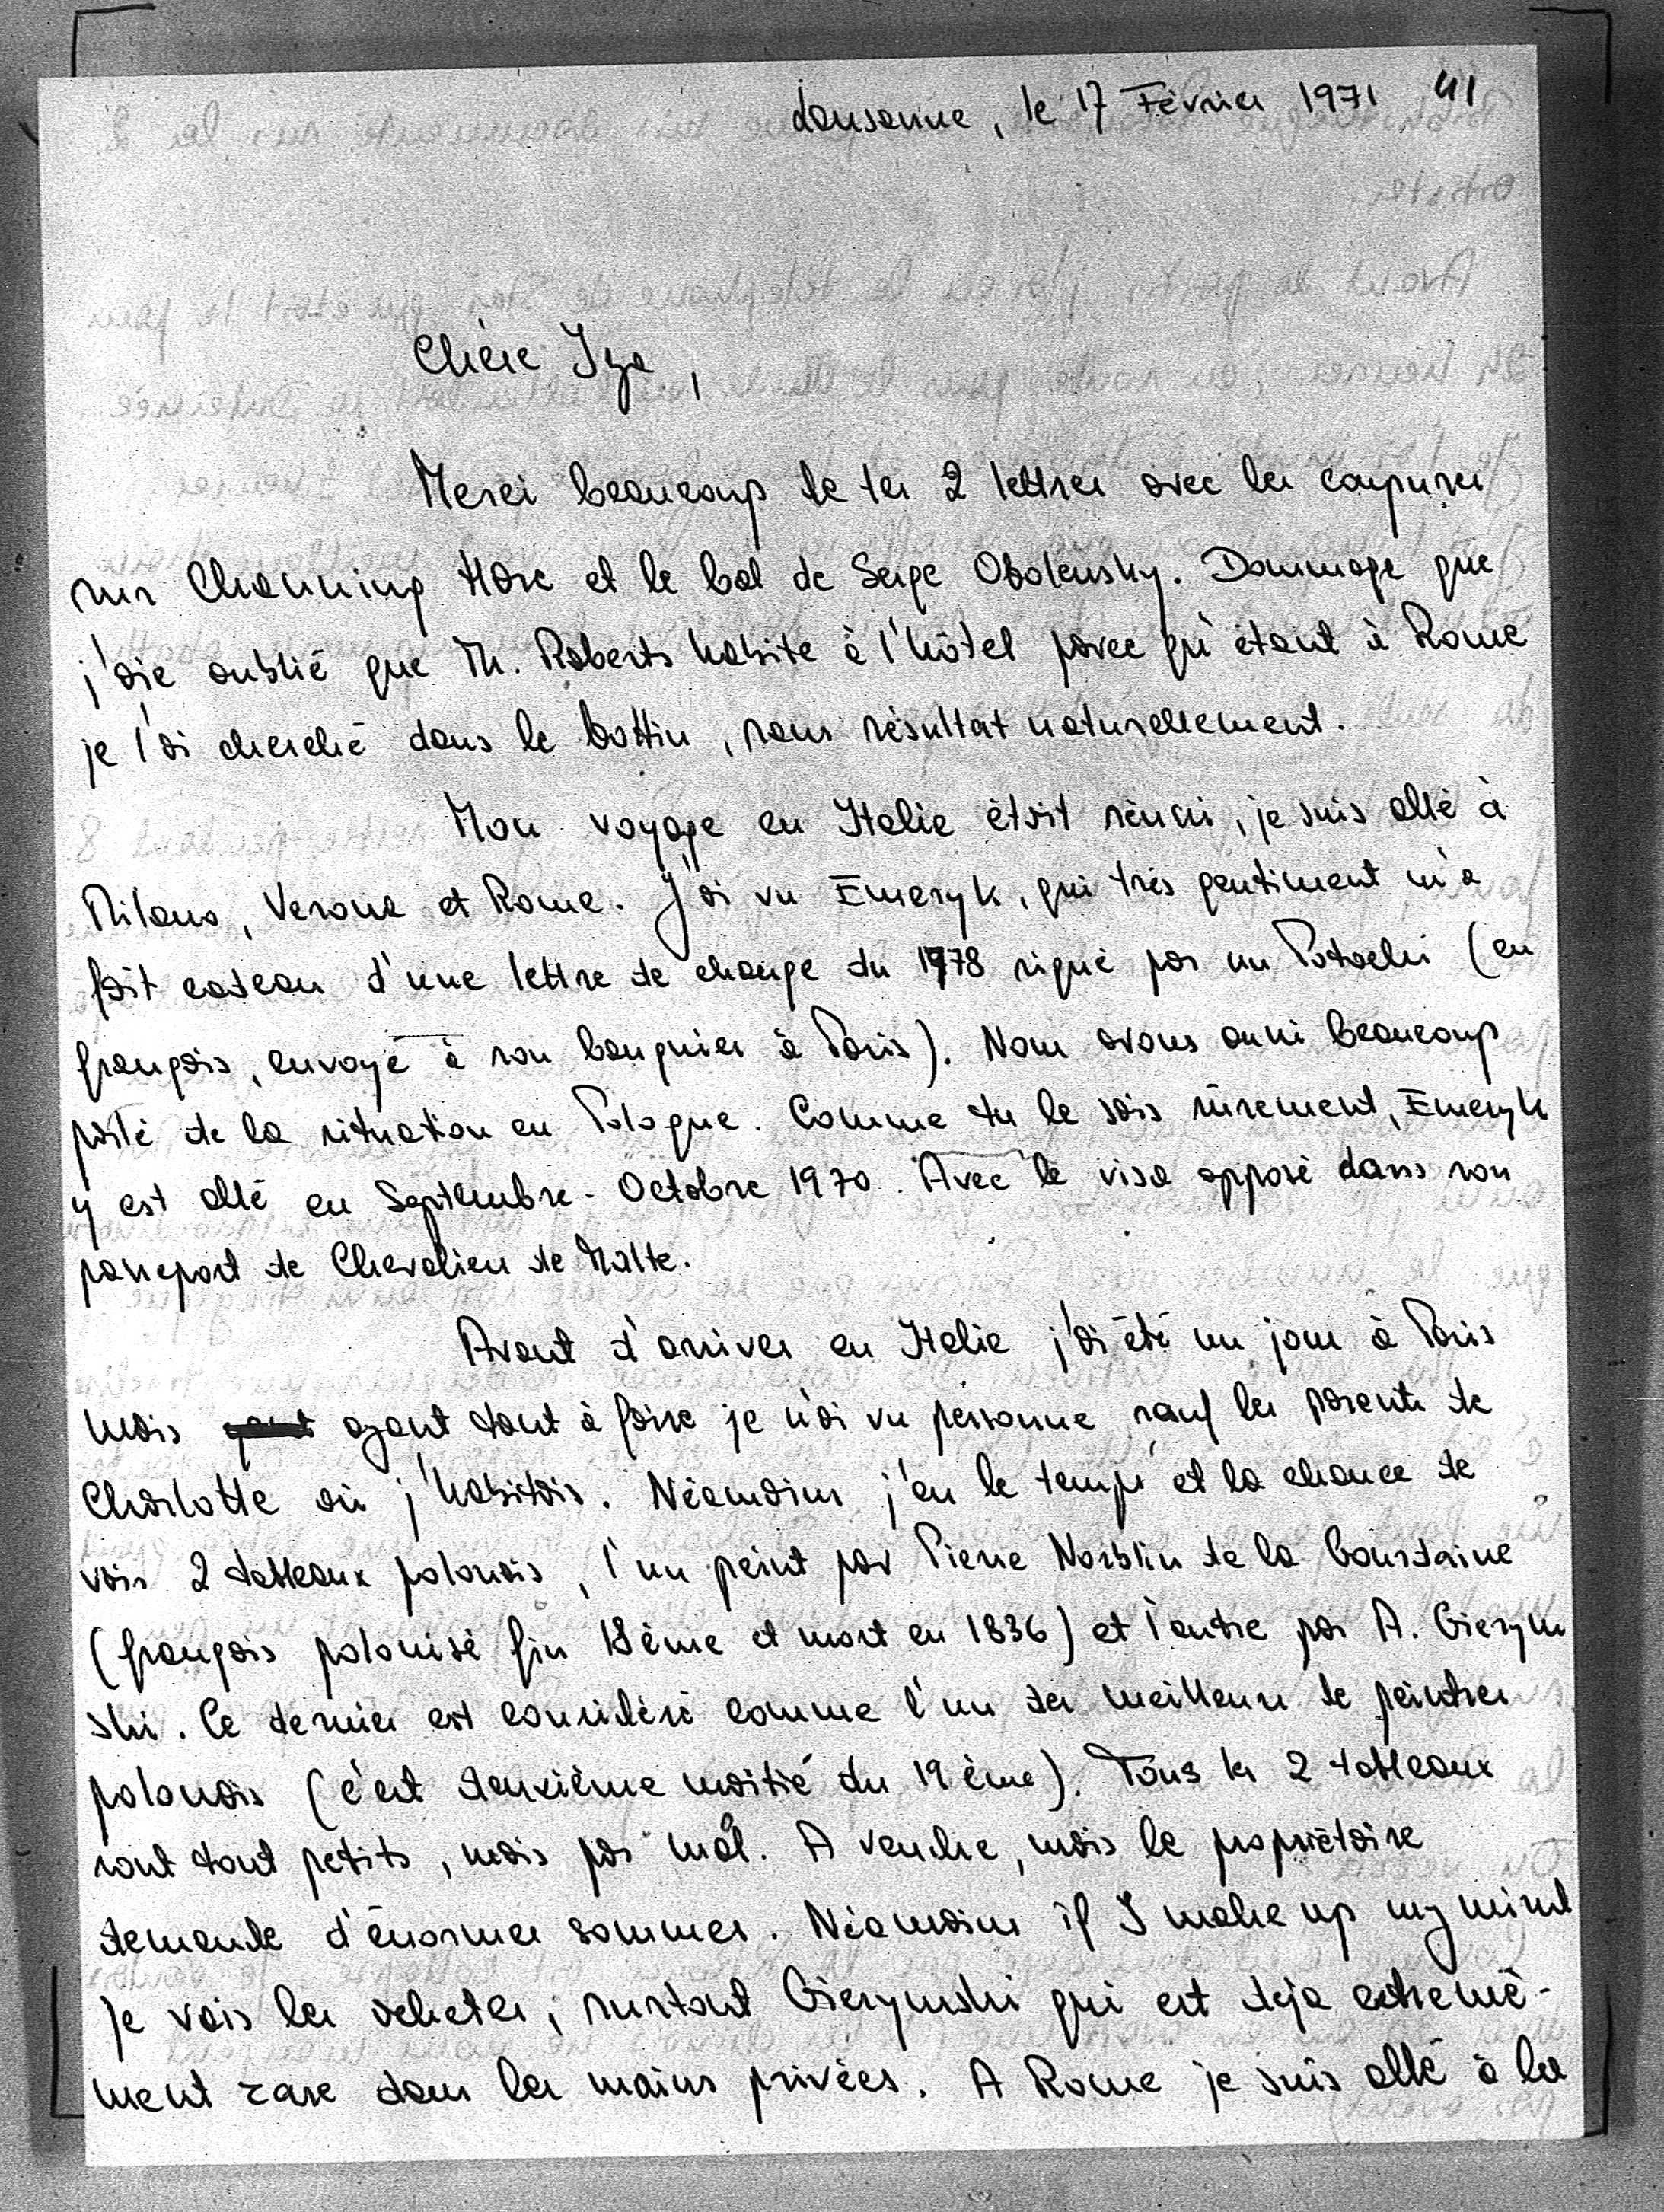 Lausanne, le 17 Février 1971 41
Chère Iza,
Merci beaucoup de tes 2 lettres avec les coupures
sur Channing Hare et le bal de Serge Obolensky. Dommage que
j'aie oublié que Th. Roberts habite à l'hôtel parce qu'étant à Rome
je l'ai cherché dans le bottin, sans résultat naturellement.
Mon voyage en Italie était réussi, je suis allé à
Milano, Verona et Rome. J'ai vu Emeryk, qui très gentiment m'a
fait cadeau d'une lettre de change du 1778 signé par un Potocki (en
français, envoyé à son banquier à Paris). Nous avons aussi beaucoup
parlé de la situation en Pologne. Comme tu le sais sûrement, Emeryk
y est allé en Septembre - Octobre 1970. Avec le visa apposé dans son
passeport de Chevalier de Malte.
Avant d'arriver en Italie j'ai été un jour à Paris
mais ayant tant à faire je n'ai vu personne sauf les parents de
Charlotte où j'habitais. Néamoins j'eu le temps et la chance de
voir 2 tableaux polonais, l'un peint par Pierre Norblin de la Gourdaine
(français polonisé fin 18ème et mort en 1836) et l'autre par A. Gierym
ski. Ce dernier est considéré comme l'un des meilleurs de peintres
polonais (c'est deuxième moitié du 19ème). Tous les 2 tableaux
sont tout petits, mais pas mal. A vendre, mais le propriétaire
demande d'énormes sommes. Néamoins if I make up my mind
je vais les acheter, surtout Gierymski qui est deja extremê-
ment rare dans les mains privées. A Rome je suis allé à la